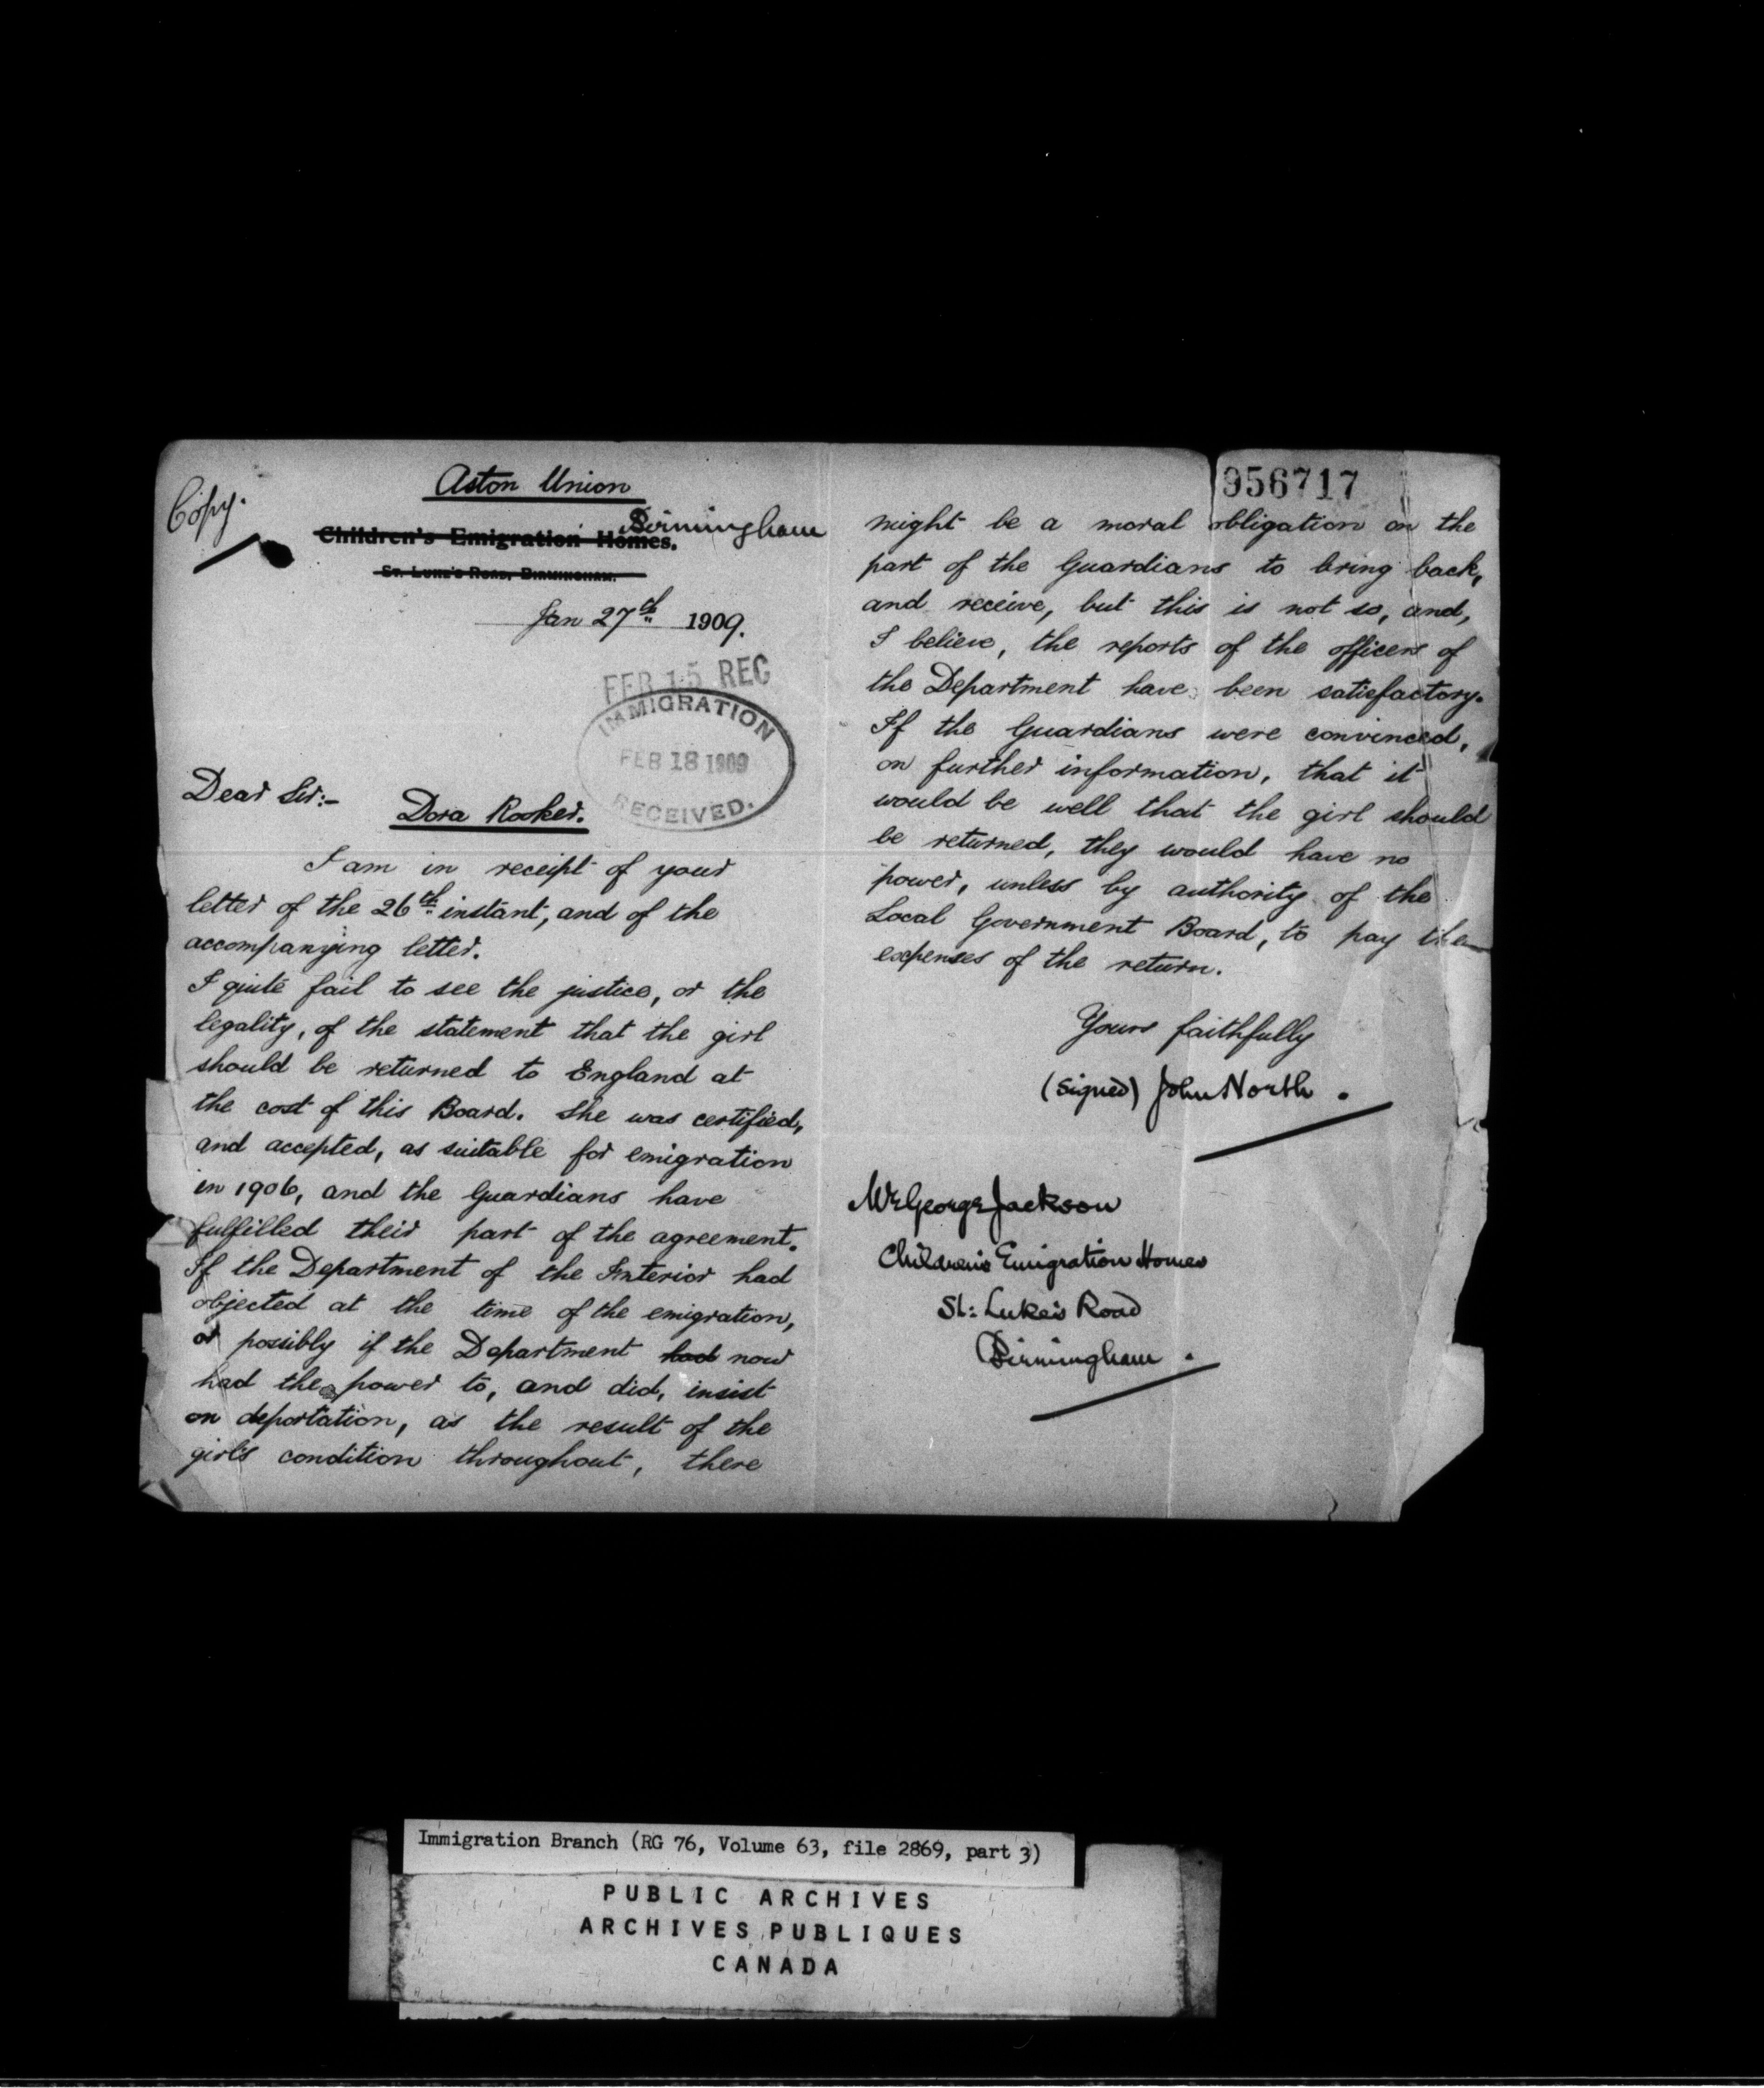 Copy.
Aston Union
Birmingham
Children's Emigration Homes.
St. Luke's Road, Birmingham.
Jan 27th 1909.
FEB 15 REC
IMMIGRATION
FEB 18 1909
RECEIVED.
Dear Sir:-
Dora Rooker.
I am in receipt of your
letter of the 26th instant, and of the
accompanying letter.
I quite fail to see the justice, or the
legality, of the statement that the girl
should be returned to England at
the cost of this Board. She was certified,
and accepted, as suitable for emigration
in 1906, and the Guardians have
fulfilled their part of the agreement.
If the Department of the Interior had
objected at the time of the emigration,
or possibly if the Department had now
had the power to, and did, insist
on deportation, as the result of the
girl's condition throughout, there
956717
might be a moral obligation on the
part of the Guardians to bring back,
and receive, but this is not so, and,
I believe, the reports of the officers of
the Department have been satisfactory.
If the Guardians were convinced,
on further information, that it
would be well that the girl should
be returned, they would have no
power, unless by authority of the
Local Government Board, to pay the
expenses of the return.
Yours faithfully
(Signed) John North.
Mr George Jackson
Children's Emigration Homes
St: Luke's Road
Birmingham.
Immigration Branch (RG 76, Volume 63, file 2869, part 3)
PUBLIC ARCHIVES
ARCHIVES PUBLIQUES
CANADA